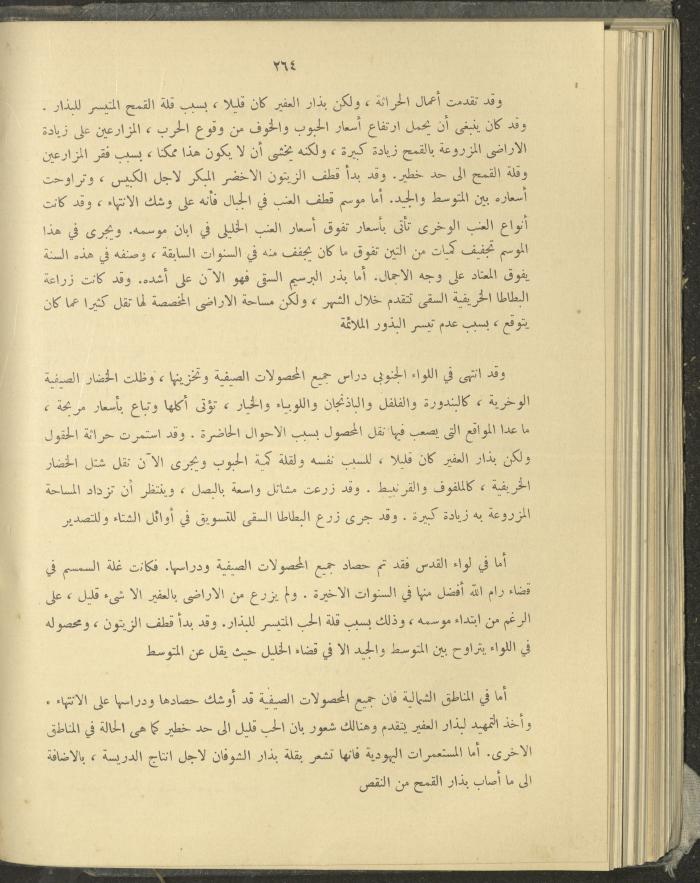 ٢٦٤
وقد تقدمت أعمال الحراثة ، ولكن بذار العفير كان قليلا ، بسبب قلة القمح المتيسر للبذار .
وقد كان ينبغى أن يحمل ارتفاع أسعار الحبوب والخوف من وقوع الحرب ، المزارعين على زيادة
الاراضى المزروعة بالقمح زيادة كبيرة ، ولكنه يخشى أن لا يكون هذا ممكنا ، بسبب فقر المزارعين
وقلة القمح الى حد خطير. وقد بدأ قطف الزيتون الاخضر المبكر لاجل الكبيس ، وتراوحت
أسعاره بين المتوسط والجيد. أما موسم قطف العنب في الجبال فأنه على وشك الانتهاء ، وقد كانت
أنواع العنب الوخرى تأتى بأسعار تفوق أسعار العنب الخليلى في ابان موسمه. ويجرى في هذا
الموسم تجفيف كميات من التين تفوق ما كان يجفف منه في السنوات السابقة ، وصنفه في هذه السنة
يفوق المعتاد على وجه الاجمال. أما بذر البرسيم السقى فهو الآن على أشده. وقد كانت زراعة
البطاطا الخريفية السقى تتقدم خلال الشهر ، ولكن مساحة الاراضى المخصصة لها تقل كثيرا عما كان
يتوقع ، بسبب عدم تيسر البذور الملائمة
وقد انتهى في اللواء الجنوبى دراس جميع المحصولات الصيفية وتخزينها ، وظلت الخضار الصيفية
الوخرية ، كالبندورة والفلفل والباذنجان واللوبياء والخيار ، تؤتى أكلها وتباع بأسعار مربحة ،
ما عدا المواقع التى يصعب فيها نقل المحصول بسبب الاحوال الحاضرة . وقد استمرت حراثة الحقول
ولكن بذار العفير كان قليلا ، للسبب نفسه ولقلة كمية الحبوب ويجرى الآن نقل شتل الخضار
الخريفية ، كالملفوف والقرنبيط . وقد زرعت مشاتل واسعة بالبصل ، وينتظر أن تزداد المساحة
المزروعة به زيادة كبيرة . وقد جرى زرع البطاطا السقى للتسويق في أوائل الشتاء وللتصدير
أما في لواء القدس فقد تم حصاد جميع المحصولات الصيفية ودراسها. فكانت غلة السمسم في
قضاء رام الله أفضل منها في السنوات الاخيرة . ولم يزرع من الاراضى بالعفير الا شىء قليل ، على
الرغم من ابتداء موسمه ، وذلك بسبب قلة الحب المتيسر للبذار. وقد بدأ قطف الزيتون ، ومحصوله
في اللواء يتراوح بين المتوسط والجيد الا في قضاء الخليل حيث يقل عن المتوسط
أما في المناطق الشمالية فان جميع المحصولات الصيفية قد أوشك حصادها ودراسها على الانتهاء .
وأخذ التمهيد لبذار العفير يتقدم وهنالك شعور بان الحب قليل الى حد خطير كما هى الحالة في المناطق
الاخرى. أما المستعمرات اليهودية فانها تشعر بقلة بذار الشوفان لاجل انتاج الدريسة ، بالاضافة
الى ما أصاب بذار القمح من النقص